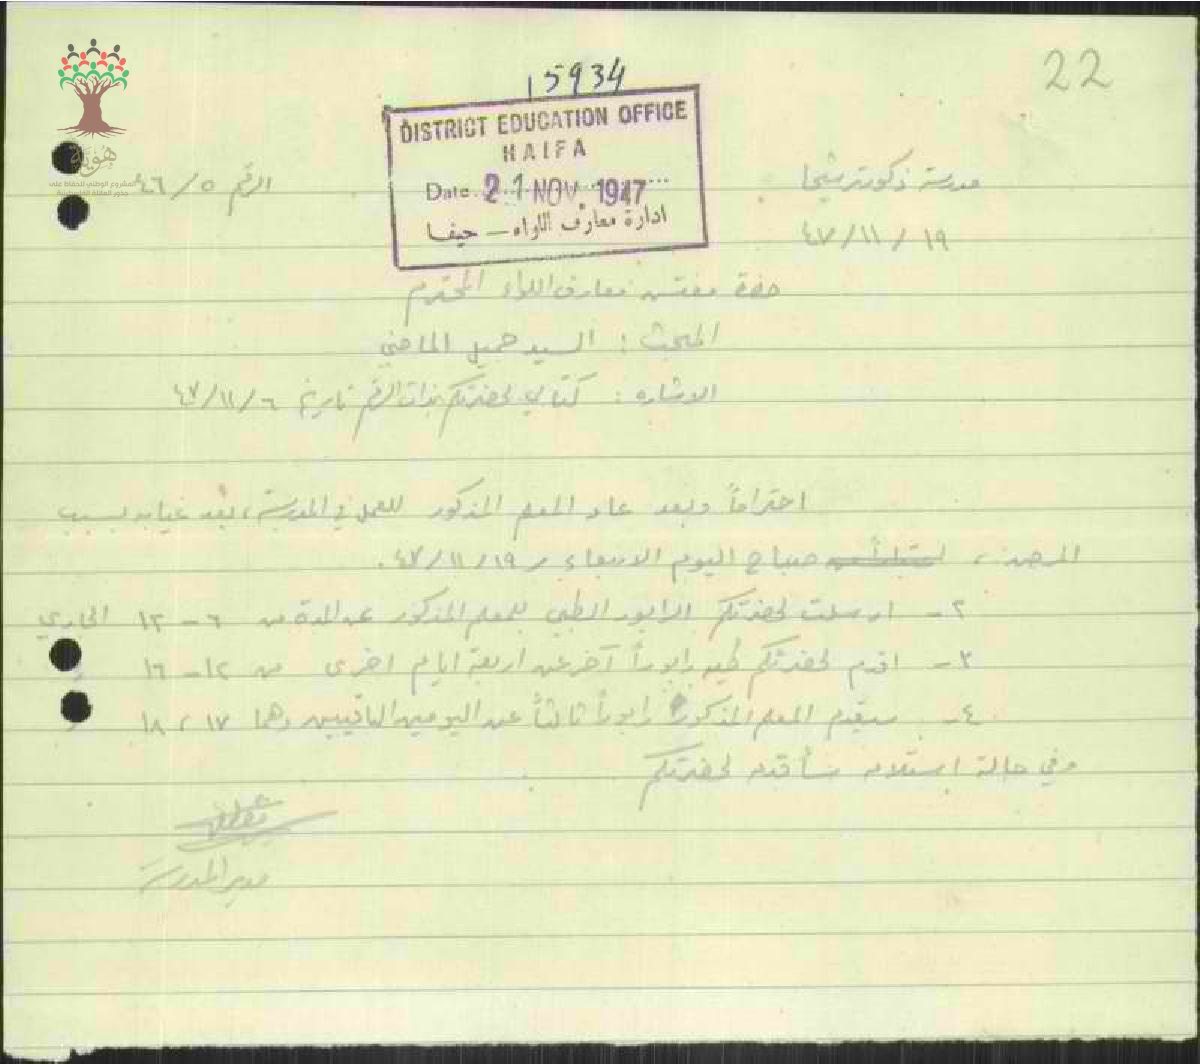 22
15934
DISTRICT EDUCATION OFFICE
HAIFA
Date 21 NOV. 1947
ادارة معارف اللواء — حيفا
هوية
المشروع الوطني للحفاظ على
جذور العائلة الفلسطينية
مدرسة ذكور ترشيحا
الرقم ٤٦/٥
١٩/١١/٤٧
حضرة مفتش معارف اللواء المحترم
المبحث : السيد جميل الماضي
الاشاره : كتابي لحضرتكم بذات الرقم تاريخ ٤٧/١١/٦
احتراماً وبعد عاد المعلم المذكور للعمل في المدرسة، بعد غيابه بسبب
المرض، صباح اليوم الاربعاء ١٩/١١/٤٧.
٢- ارسلت لحضرتكم الرابور الطبي للمعلم المذكور عن المدة من ٦-١٢ الجاري
٣- اقدم لحضرتكم طيه رابوراً آخر عن اربعة ايام اخرى من ١٢-١٦
٤- سيقدم المعلم المذكور رابوراً ثالثاً عن اليومين الباقيين وهما ١٧، ١٨
وفي حالة استلامه سأقدمه لحضرتكم
مدير المدرسة